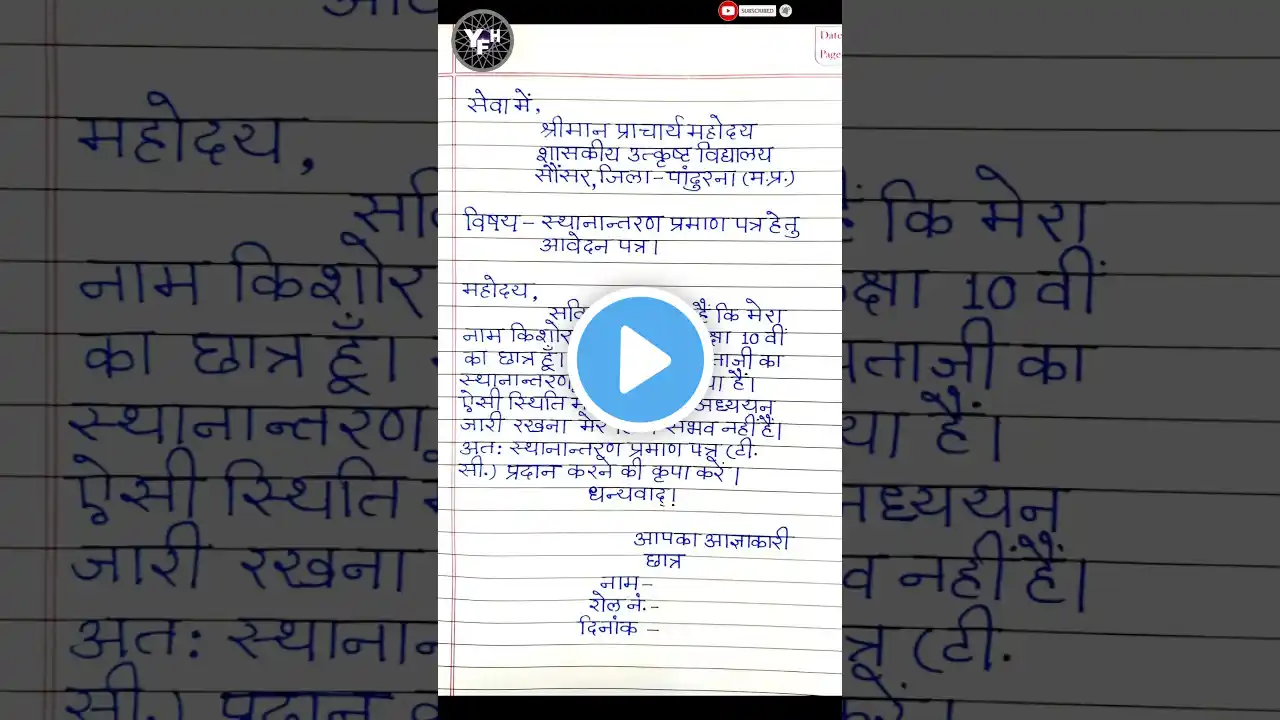 SUBSCRIBED
YFH
Date
Page
सेवा में,
श्रीमान प्राचार्य महोदय
शासकीय उत्कृष्ट विद्यालय
सौंसर, जिला - पांढुरना (म.प्र.)
विषय - स्थानान्तरण प्रमाण पत्र हेतु
आवेदन पत्र।
महोदय,
है कि मेरा
नाम किशोर 10 वीं
का छात्र हूँ। का
स्थानान्तरण हैं।
ऐसी स्थिति अध्ययन
जारी रखना संभव नहीं हैं।
अतः स्थानान्तरण प्रमाण पत्र (टी.
सी.) प्रदान करने की कृपा करें।
धन्यवाद!
आपका आज्ञाकारी
छात्र
नाम -
रोल नं. -
दिनांक -